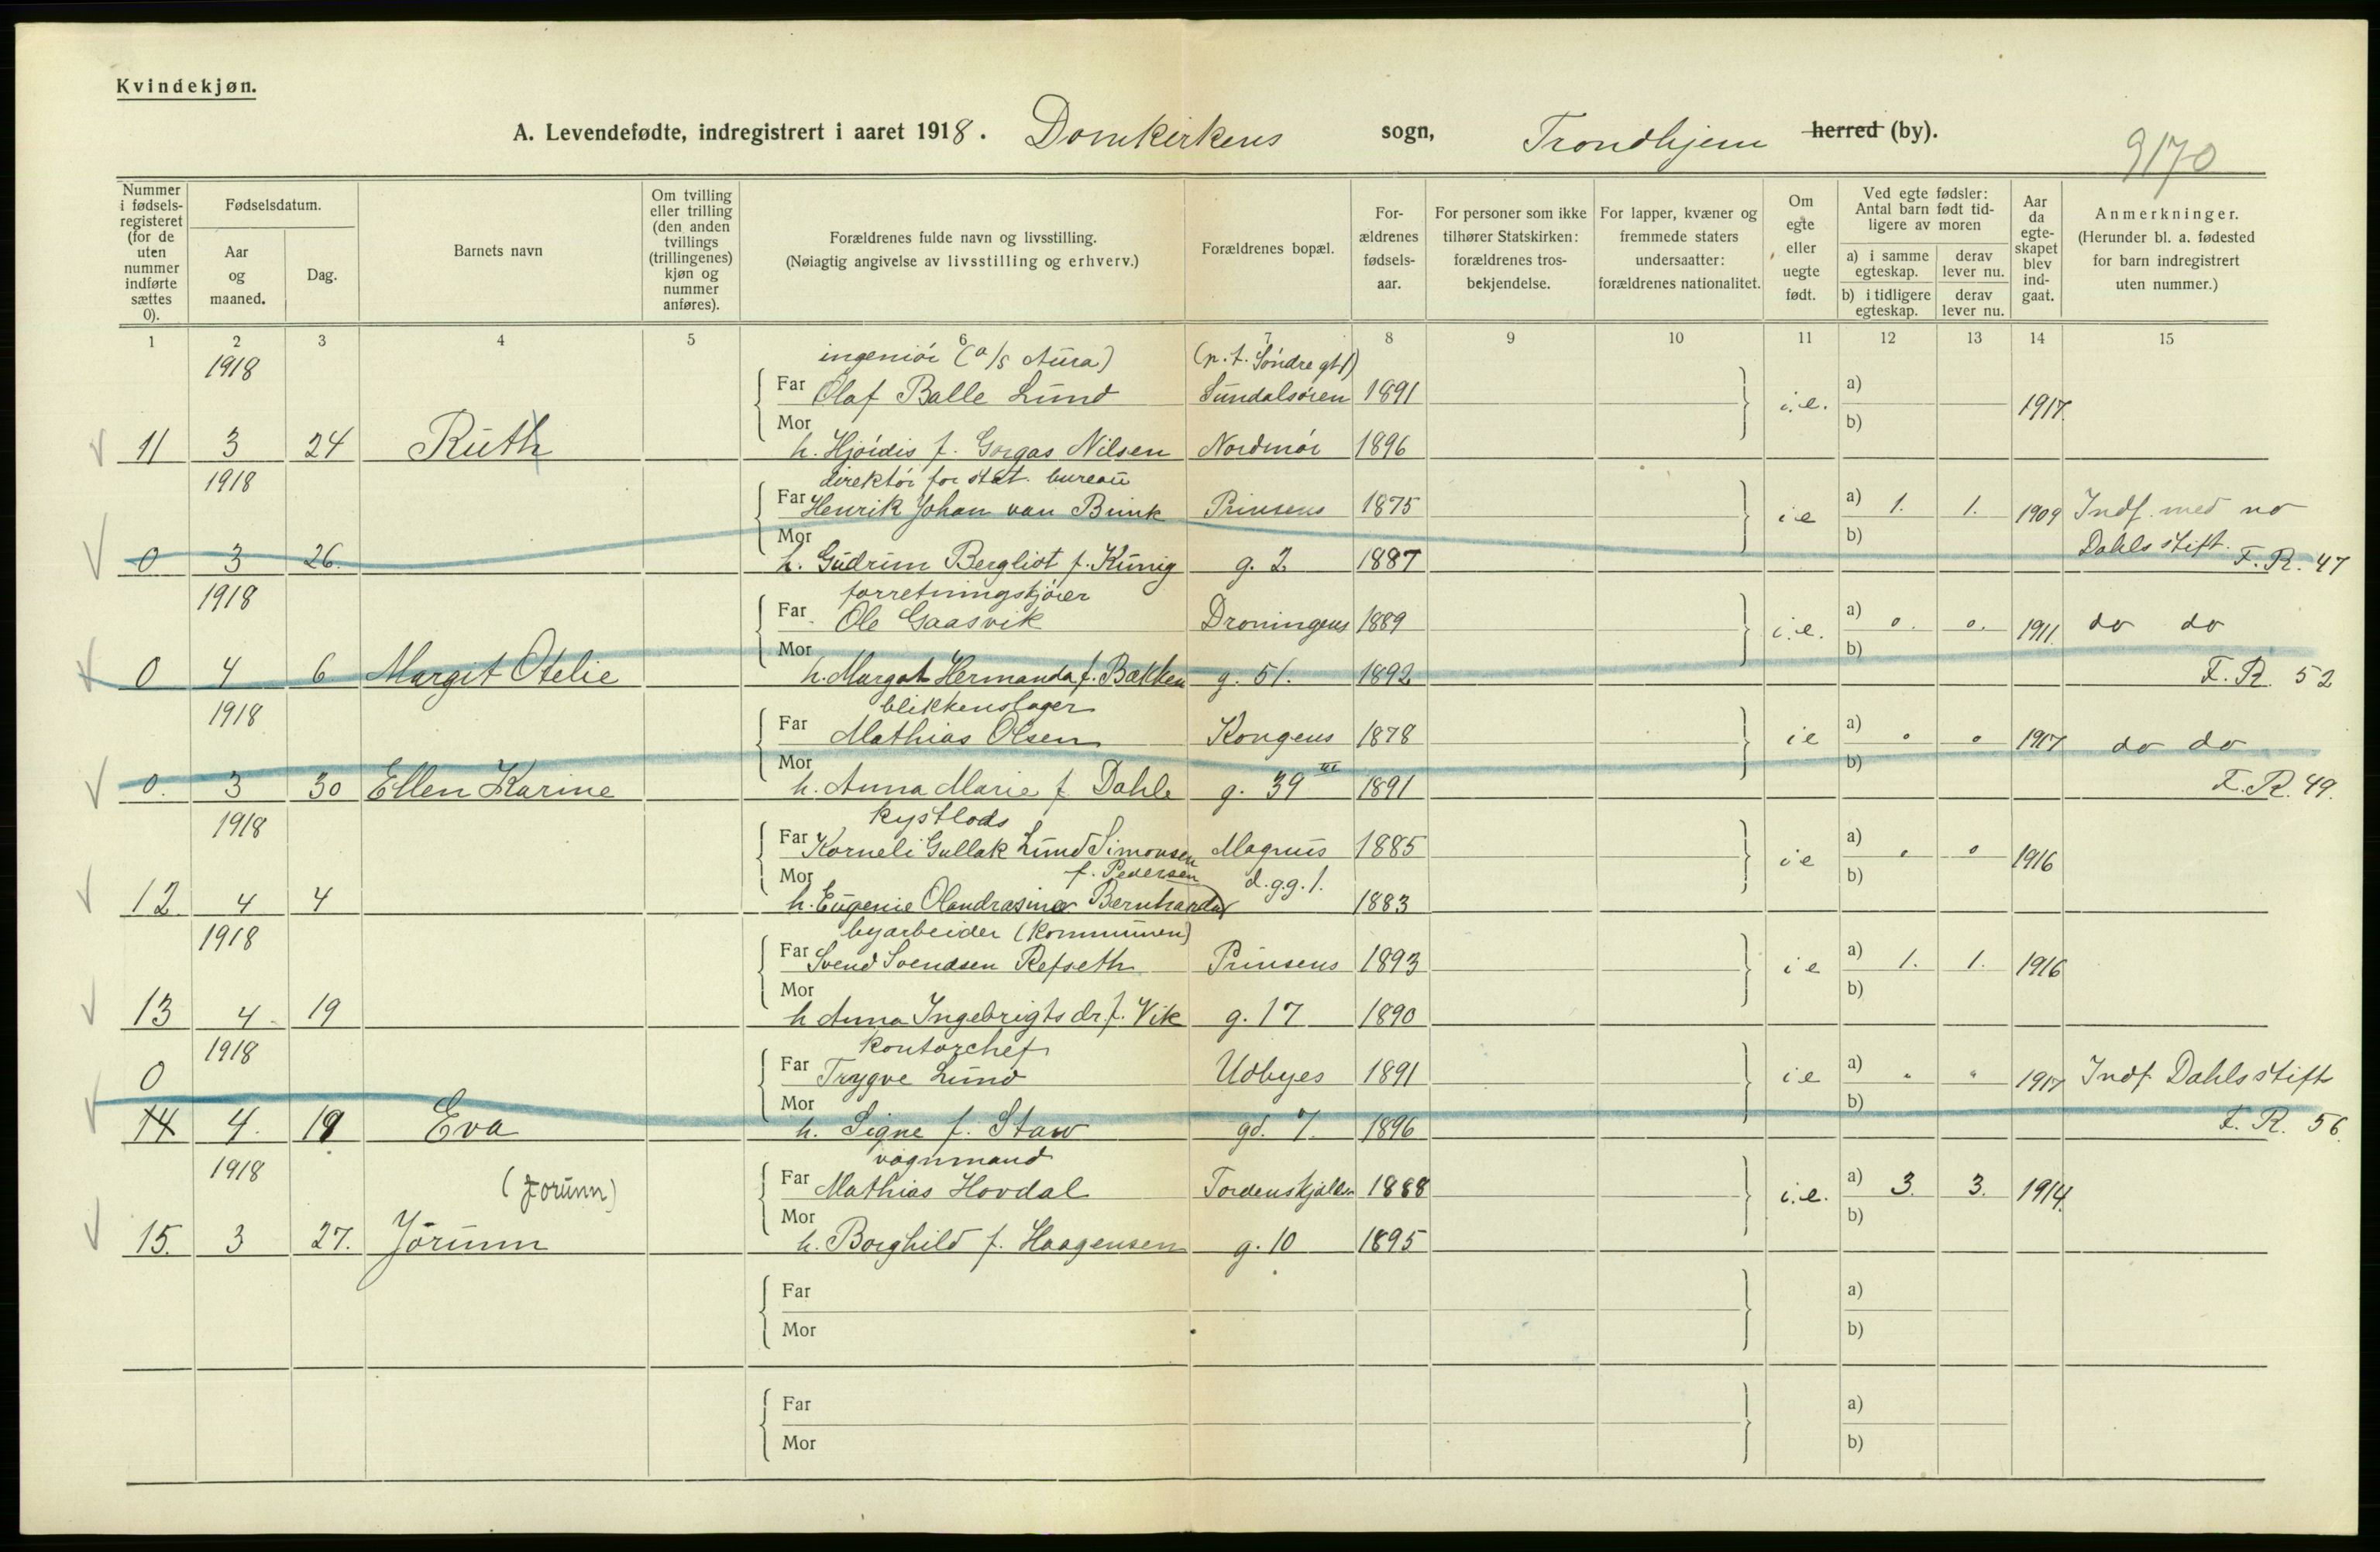 Kvindekjøn.
A. Levendefødte, indregistrert i aaret 1918. Domkirkens sogn, Trondhjem herred (by).
9170
Nummer i fødsels-registeret (for de uten nummer indførte sættes 0).
Fødselsdatum.
Aar og maaned.
Dag.
Barnets navn
Om tvilling eller trilling (den anden tvillings (trillingenes) kjøn og nummer anføres).
Forældrenes fulde navn og livsstilling.
(Nøiagtig angivelse av livsstilling og erhverv.)
Forældrenes bopæl.
For-ældrenes fødsels-aar.
For personer som ikke tilhører Statskirken: forældrenes tros-bekjendelse.
For lapper, kvæner og fremmede staters undersaatter: forældrenes nationalitet.
Om egte eller uegte født.
Ved egte fødsler: Antal barn født tid-ligere av moren
a) i samme egteskap. derav lever nu.
b) i tidligere egteskap. derav lever nu.
Aar da egte-skapet blev ind-gaat.
Anmerkninger.
(Herunder bl. a. fødested for barn indregistrert uten nummer.)
1 2 3 4 5 6 7 8 9 10 11 12 13 14 15
1918 ingeniör (a/s Aura) (p.t. Söndre gt 1)
Far Olaf Balle Lund Sundalsören 1891 i.e. a) 1917
Mor b)
11 3 24 Ruth h. Hjördis f. Gorgas Nilsen Nordmör 1896
1918 direktör for stat. bureau
Far Henrik Johan van Bunk Prinsens 1875 i e a) 1. 1. 1909 Indf. med no
Mor b) Dahls stift.
0 3 26. h. Gudrun Bergliot f. Kunig g. 2 1887 F. R. 47
1918 forretningskjörer
Far Ole Gaasvik Droningens 1889 i.e. a) 0. 0. 1911 do do
Mor b)
0 4 6 Margit Otelie h. Margot Hermanda f. Bakken g. 51. 1892 F. R. 52
1918 blikkenslager
Far Mathias Olsen Kongens 1878 i e a) 0 0 1917 do do
Mor b)
0. 3 30 Ellen Karine h. Anna Marie f Dahle g. 39 III 1891 F. R. 49.
1918 kystlods
Far Korneli Gullak Lund Simonsen Magnus 1885 i e a) 0 0 1916
Mor f. Pedersen d.g.g. 1. b)
12 4 4 h. Eugenie Olandrasine Bernharda 1883
1918 byarbeider (kommunen)
Far Svend Svendsen Refseth Prinsens 1893 i e a) 1. 1. 1916
Mor b)
13 4 19 h Anna Ingebrigts dr f. Vik g. 17 1890
1918 kontorchef
0 Far Trygve Lund Udbyes 1891 i e a) " " 1917 Indf. Dahls stift
Mor b)
14 4. 19 Eva h. Signe f. Staw gd. 7. 1896 F. R. 56.
1918 vognmand
(Jorunn) Far Mathias Hovdal Tordenskjolds 1888 i.e. a) 3. 3. 1914
Mor b)
15. 3 27. Jorunn h. Borghild f. Haagensen g. 10 1895
Far a)
Mor b)
Far a)
Mor b)